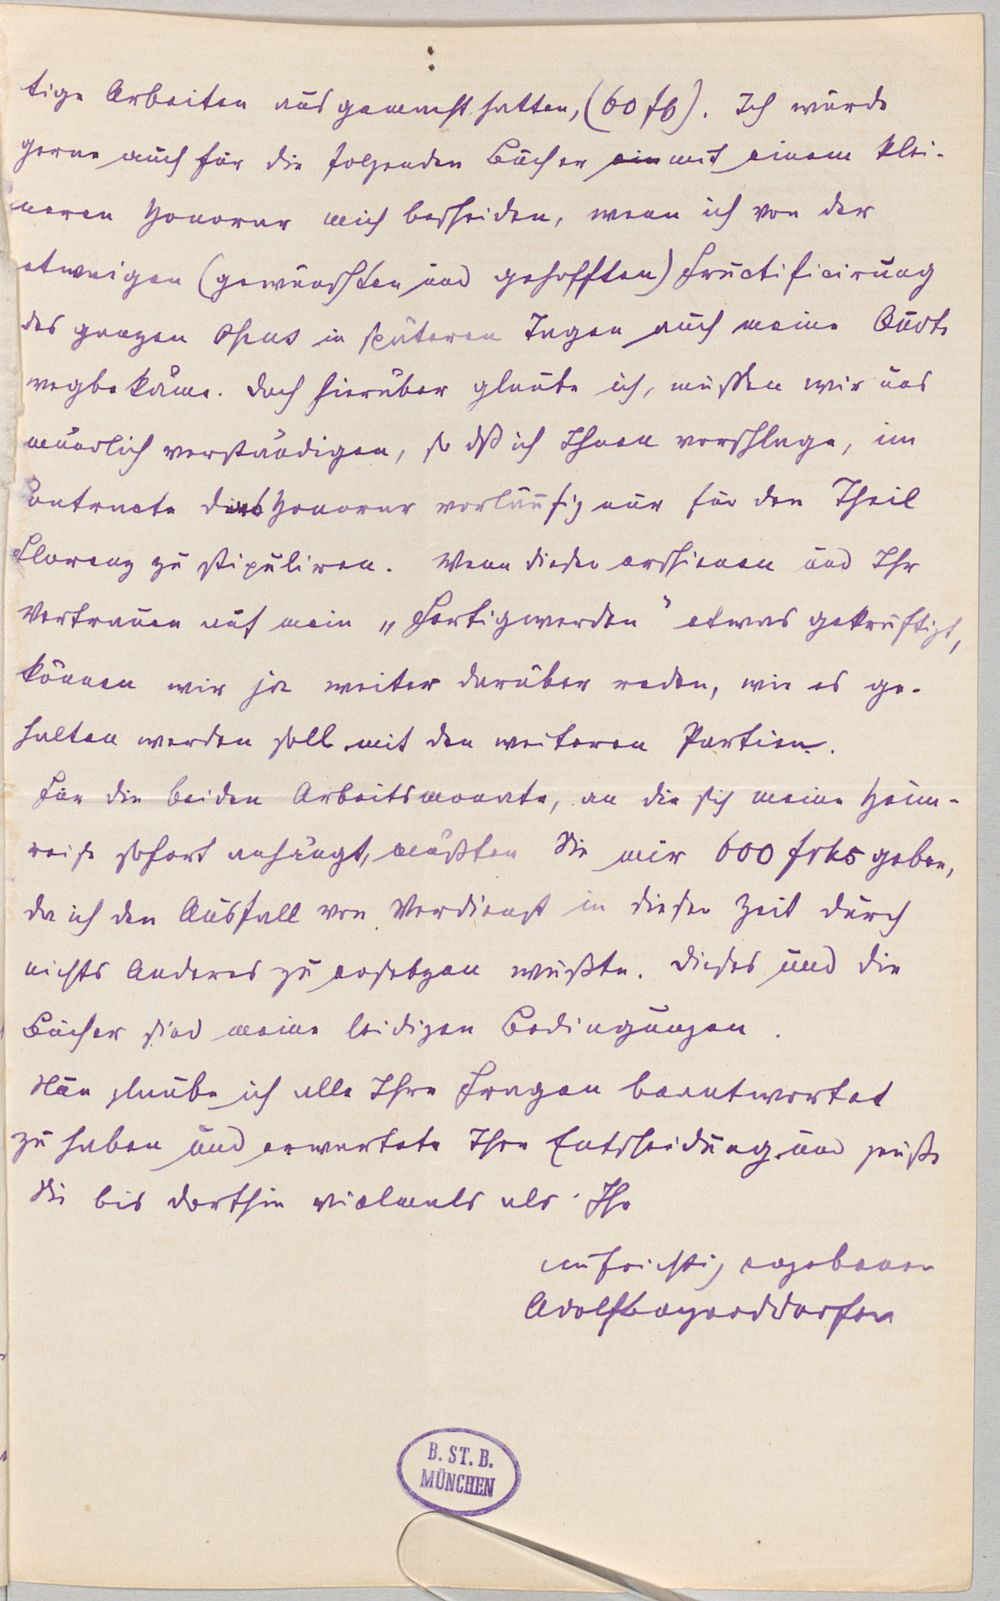 tige Arbeiten ausgemacht hatten, (60 fl). Ich würde
gerne auch für die folgenden Bücher ein mit einem klei-
neren Honorar mich bescheiden, wenn ich von der
etwaigen (gewünschten und gehofften) Fructificirung
des ganzen Opus in späteren Tagen auch meine Quote
wegbekäme. Doch hierüber glaube ich, müssen wir uns
mündlich verständigen, so dß ich Ihnen vorschlage, im
Contracte das Honorar vorläufig nur für den Theil
Florenz zu stipuliren. Wenn dieser erschienen und Ihr
Vertrauen auf mein „Fertigwerden" etwas gekräftigt,
können wir ja weiter darüber reden, wie es ge-
halten werden soll mit den weiteren Partien.
Für die beiden Arbeitsmonate, an die sich meine Heim-
reise sofort anhängt, müßten Sie mir 600 frks geben,
da ich den Ausfall von Verdienst in dieser Zeit durch
nichts Anderes zu ersetzen wüßte. Dieses und die
Bücher sind meine leidigen Bedingungen.
Nun glaube ich alle Ihre Fragen beantwortet
zu haben und erwarte Ihre Entscheidung und grüße
Sie bis dorthin vielmals als Ihr
aufrichtig ergebener
Adolf Bayersdorfer
B. ST. B.
MÜNCHEN